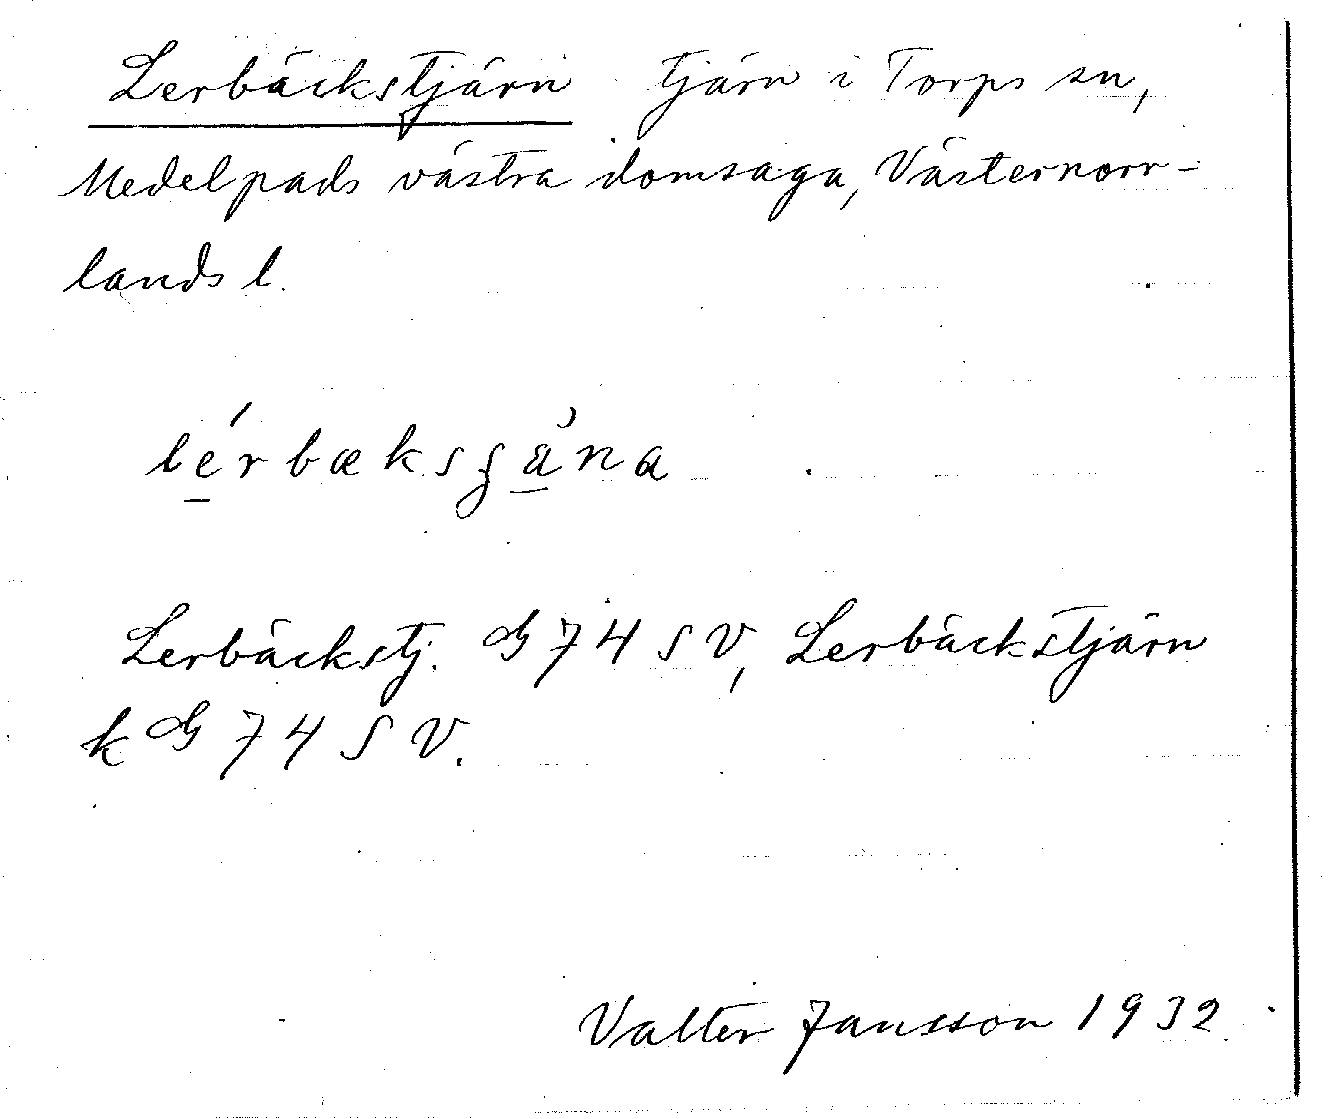 Lerbäckstjärn tjärn i Torps sn,
Medelpads västra domsaga, Västernorr-
lands l.
lérbæksʂa̠̓na
Lerbäckstj. G 74 SV, Lerbäckstjärn
k G 74 SV.
Valter Jansson 1932